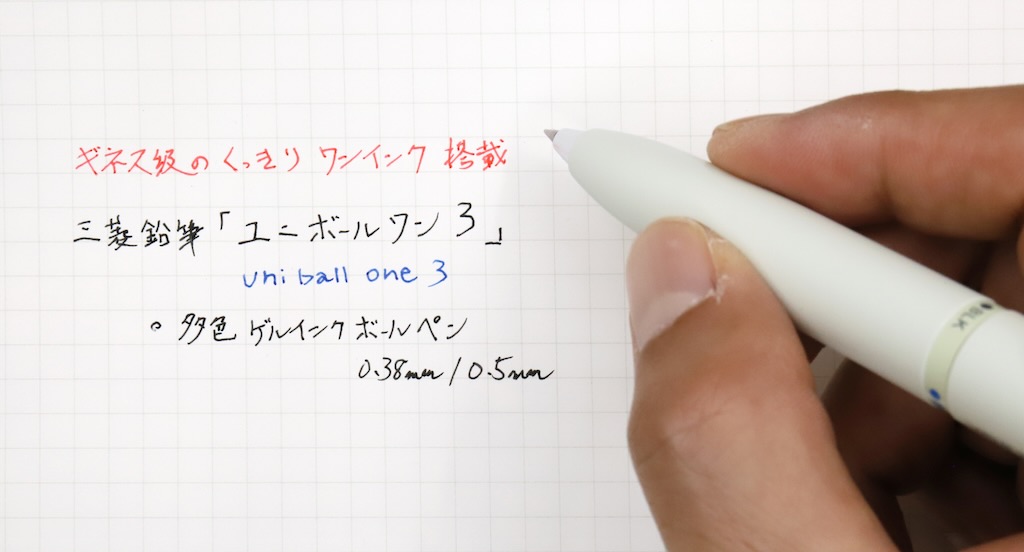 ギネス級のくっきり ワンインク 搭載
三菱鉛筆「ユニボールワン3」
uni ball one 3
。多色ゲルインクボールペン
0.38mm / 0.5mm
BLK